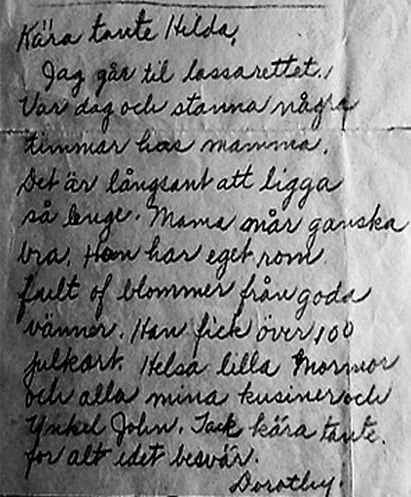 Kära tante Hilda,
Jag går til lassarettet.
Var dag och stanna några
timmar hos mamma.
Det är långsant att ligga
så lenge. Mama mår ganska
bra. Hon har eget rom
fult of blommer från goda
vänner. Hon fick över 100
julkort. Helsa lilla Mormor
och alla mina kusiner och
Ynkel John. Tack kära tante.
for alt edet besvär.
Dorothy.